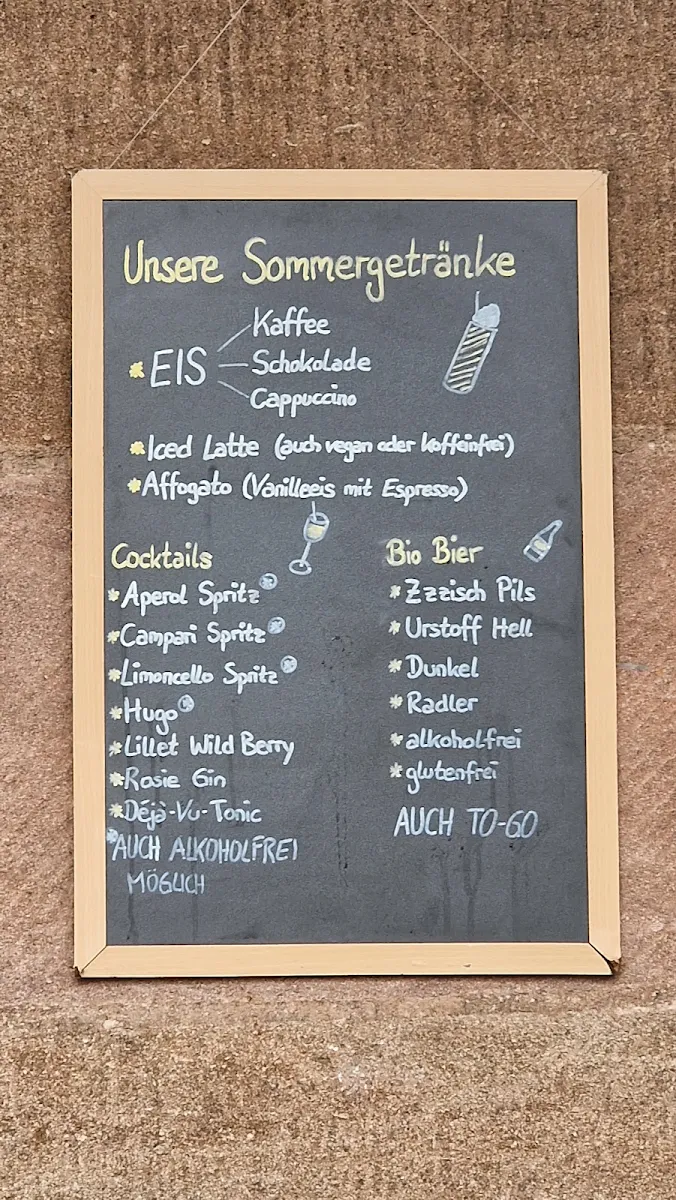 Unsere Sommergetränke
* EIS
Kaffee
Schokolade
Cappuccino
* Iced Latte (auch vegan oder koffeinfrei)
* Affogato (Vanilleeis mit Espresso)
Cocktails
* Aperol Spritz *
* Campari Spritz *
* Limoncello Spritz *
* Hugo *
* Lillet Wild Berry
* Rosie Gin
* Déjà-Vu-Tonic
* AUCH ALKOHOLFREI
MÖGLICH
Bio Bier
* Zzzisch Pils
* Urstoff Hell
* Dunkel
* Radler
* alkoholfrei
* glutenfrei
AUCH TO-GO